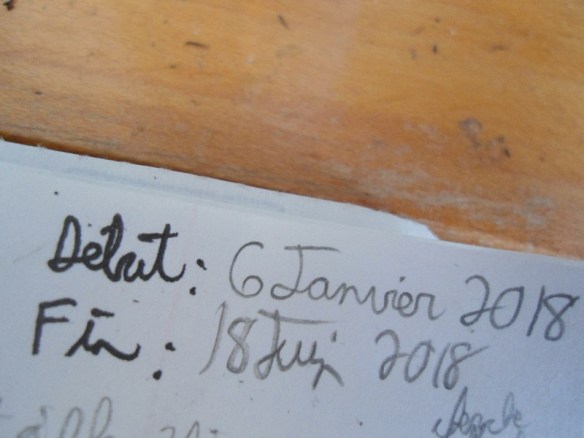 Début: 6 Janvier 2018
Fin: 18 Juin 2018